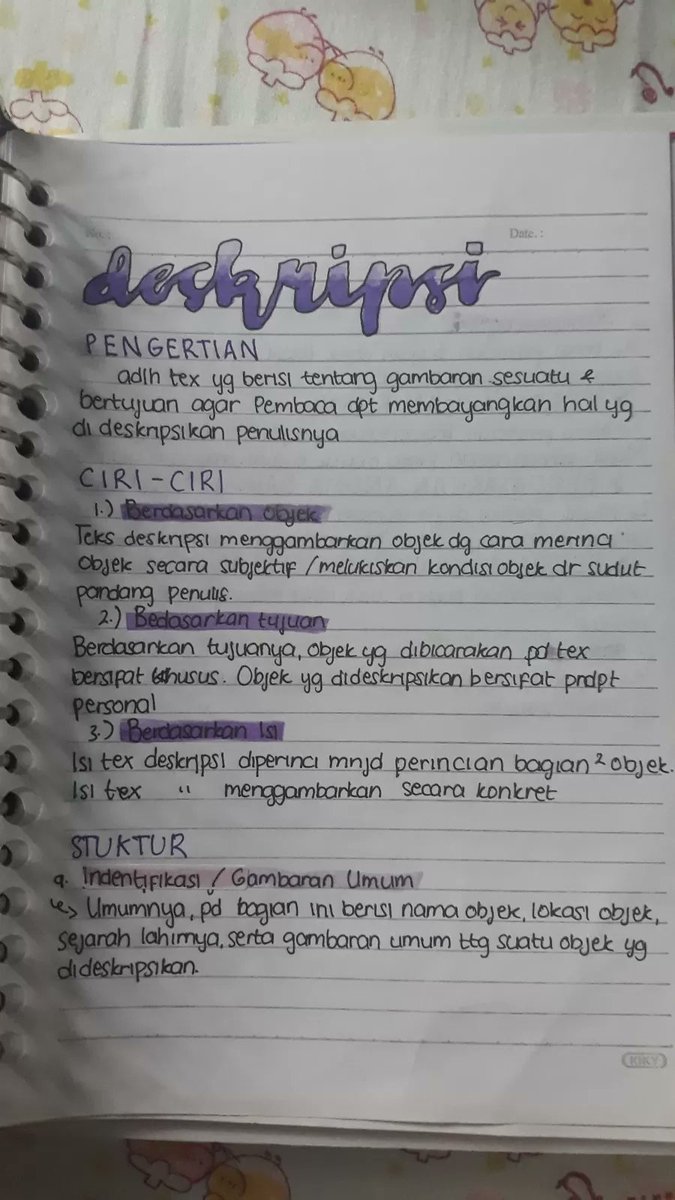 No.:
Date. :
deskripsi
PENGERTIAN
adlh tex yg berisi tentang gambaran sesuatu &
bertujuan agar Pembaca dpt membayangkan hal yg
di deskripsikan penulisnya
CIRI - CIRI
1.) Berdasarkan objek
Teks deskripsi menggambarkan objek dg cara merinci
Objek secara subjektif / melukiskan kondisi objek dr sudut
pandang penulis.
2.) Bedasarkan tujuan
Berdasarkan tujuanya, objek yg dibicarakan pd tex
bersifat khusus. Objek yg dideskripsikan bersifat prdpt
personal
3.) Berdasarkan Isi
Isi tex deskripsi diperinci mnjd perincian bagian² objek.
Isi tex " menggambarkan secara konkret
STUKTUR
a. Indentifikasi / Gambaran Umum
↳> Umumnya, pd bagian ini berisi nama objek, lokasi objek,
sejarah lahirnya, serta gambaran umum ttg suatu objek yg
dideskripsikan.
KIKY